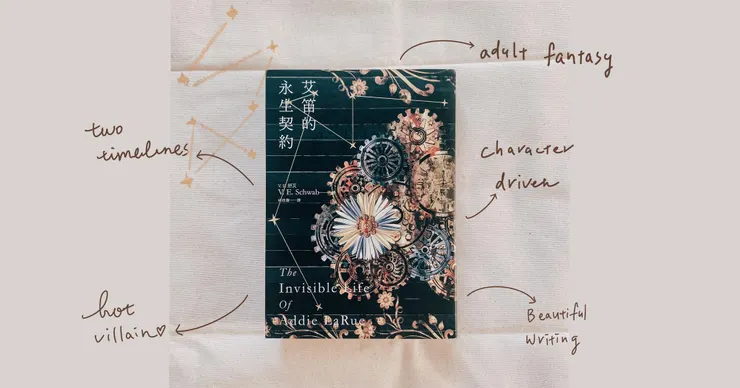 adult fantasy
two
timelines
character
driven
hot
villain♡
Beautiful
Writing
艾笛的
永生契約
V. E. 舒瓦
V. E. Schwab
The
Invisible Life
Of
Addie LaRue